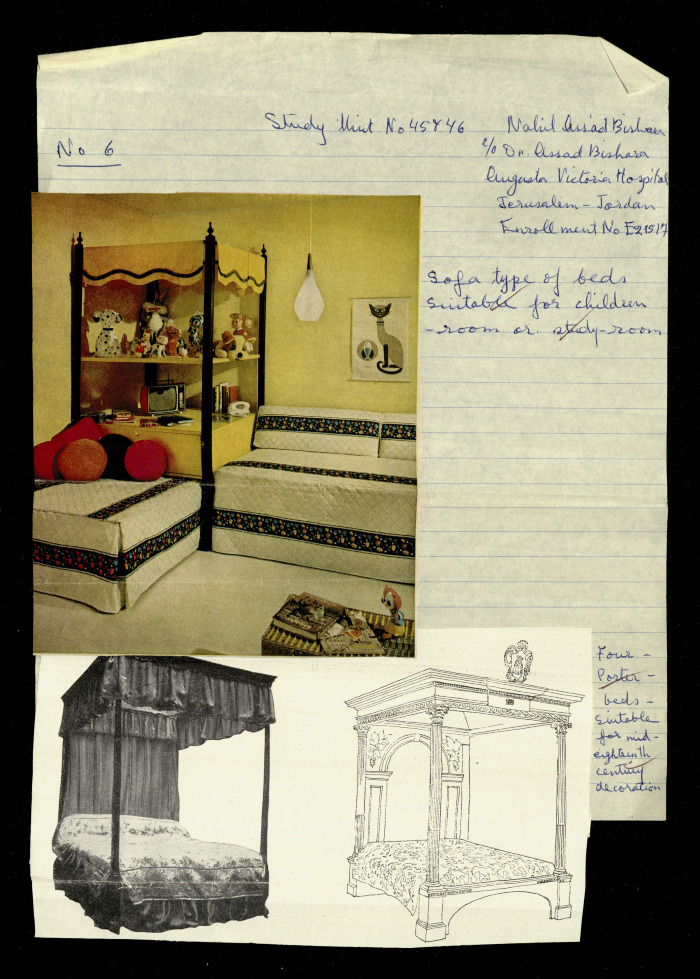 Study Unit No 45 & 46
No 6
Nahil Assad Bishara
c/o Dr. Assad Bishara
Augusta Victoria Hospital
Jerusalem - Jordan
Enrollment No E21517
Sofa type of beds
suitable for children
-room or study-room
Four -
Poster -
beds -
suitable
for mid-
eighteinth
century
decoration